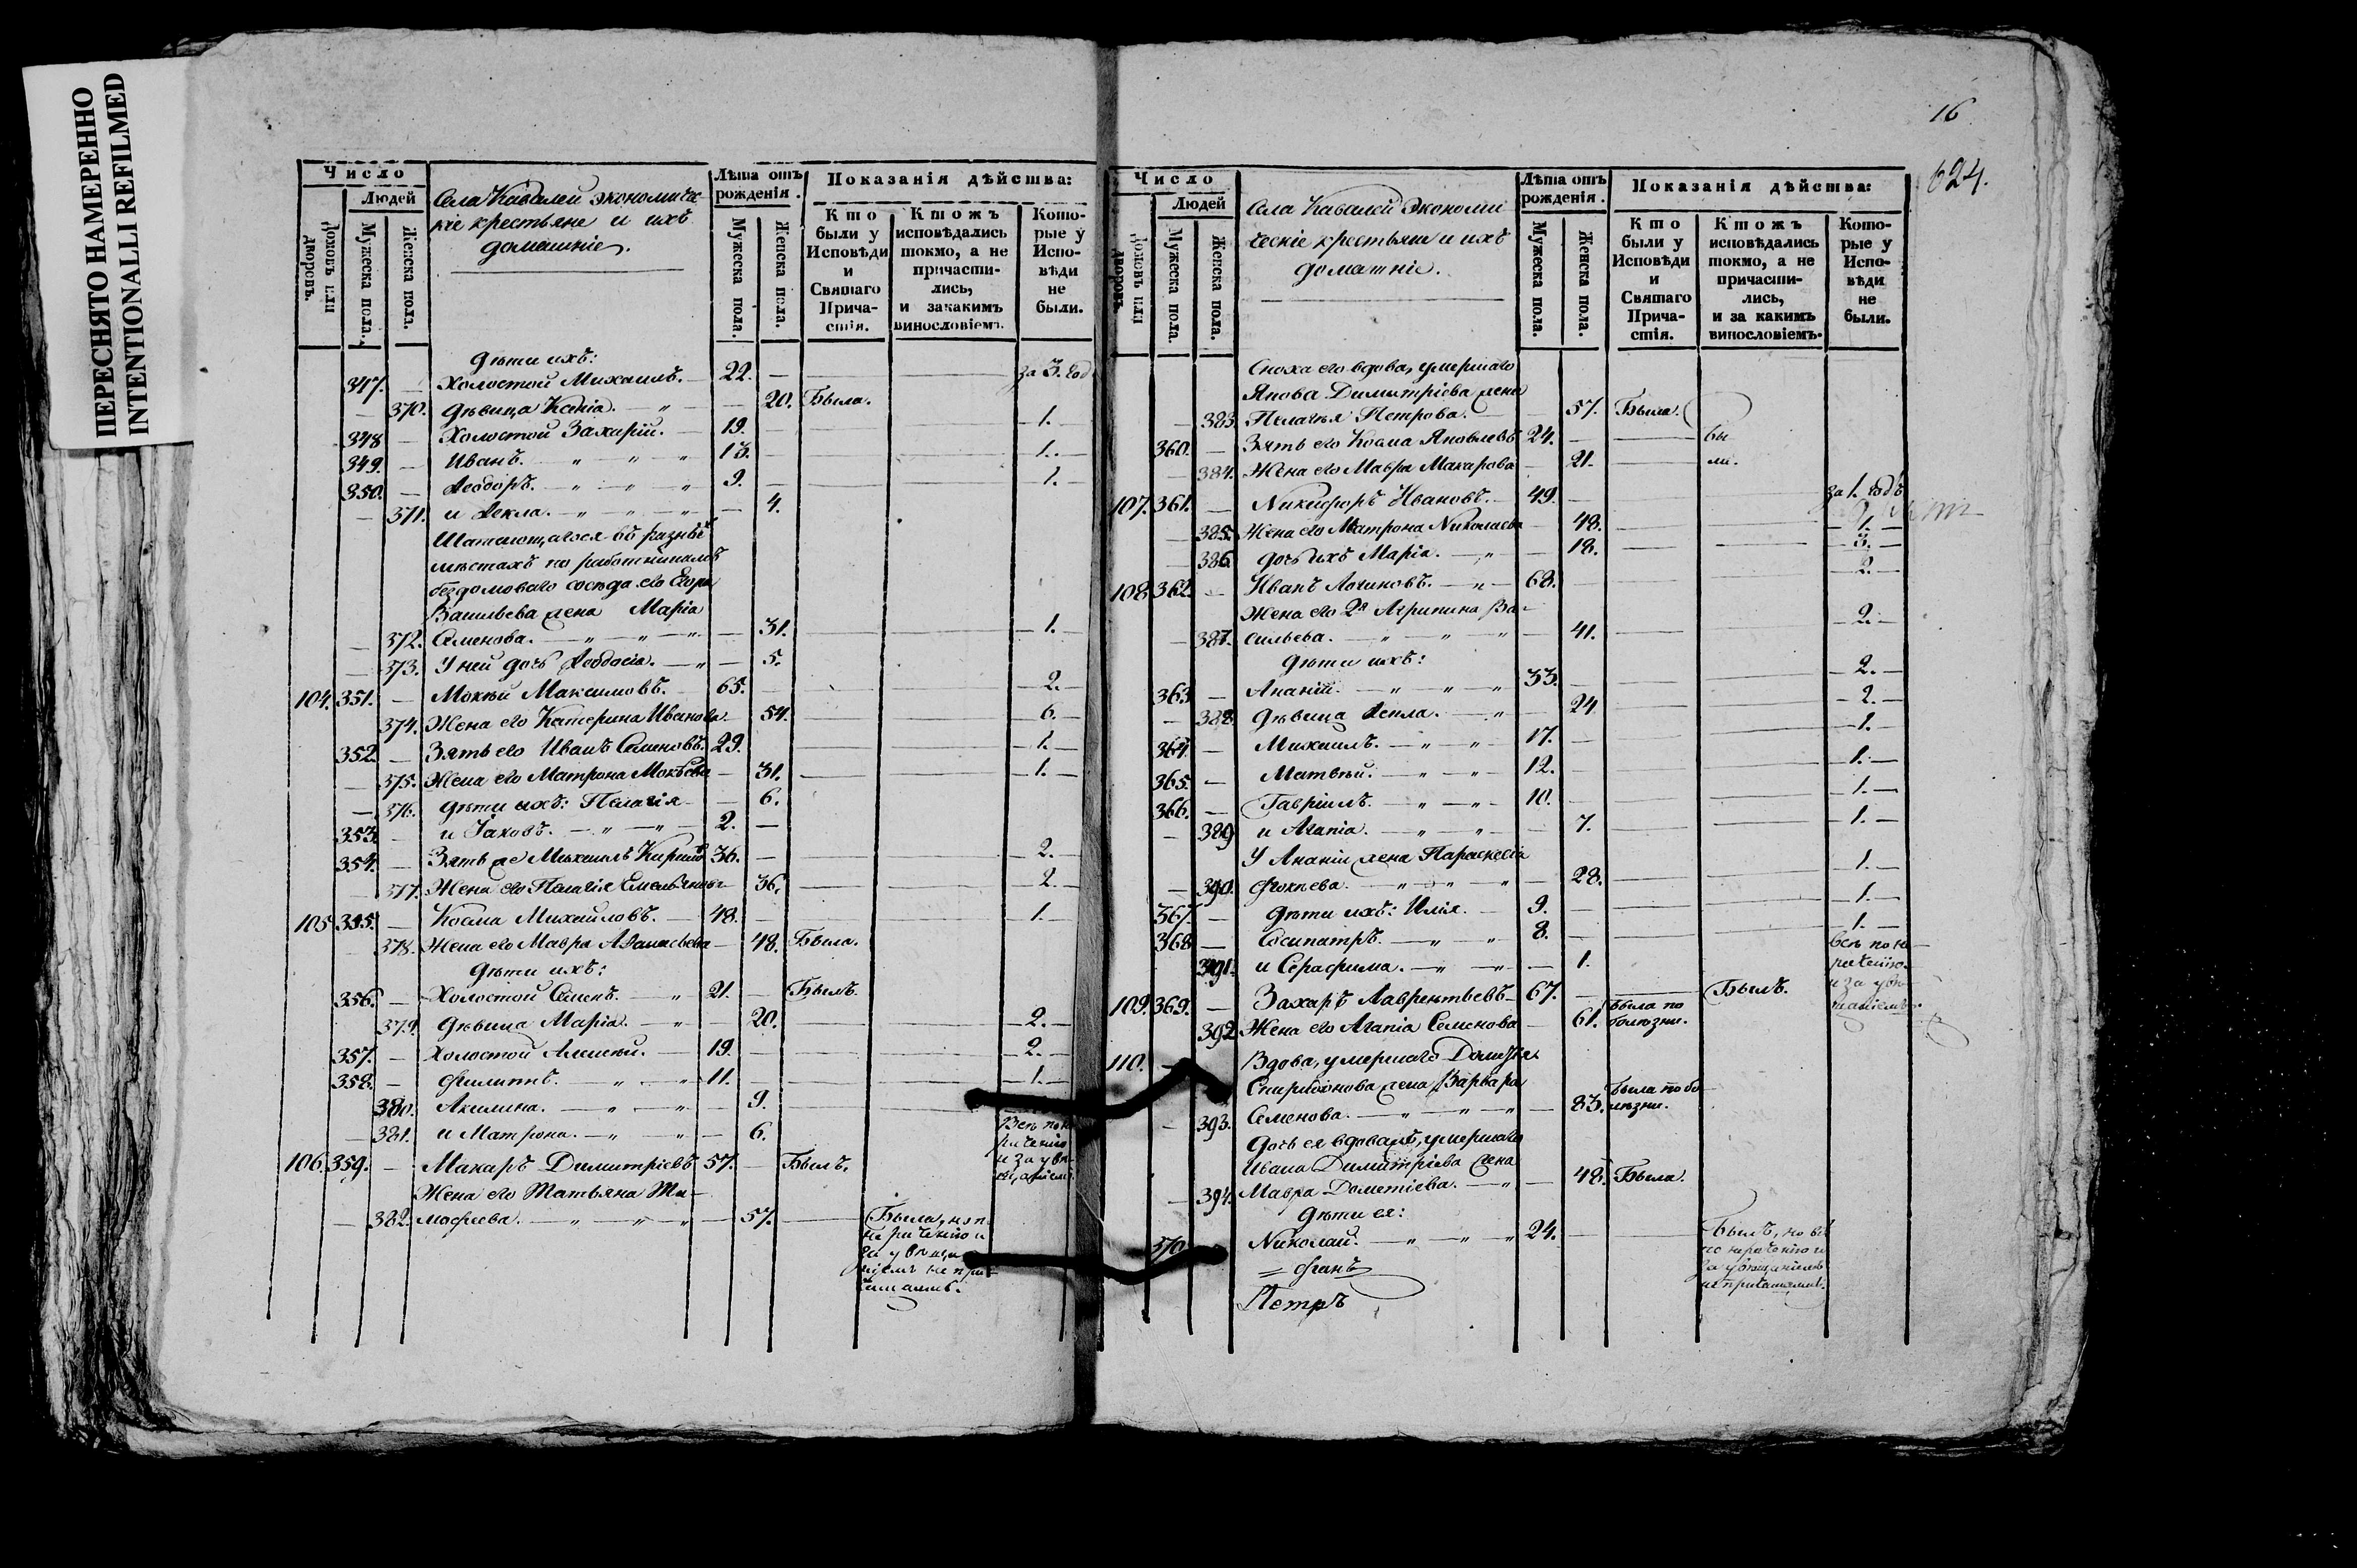 ПЕРЕСНЯТО НАМЕРЕННО
INTENTIONALLI REFILMED
Число
Людей
Домовъ или дворовъ.
Мужеска пола.
Женска пола.
Села Кавалей экономиче-
кіе крестьяне и ихъ
домашніе.
Лѣта отъ рожденія.
Мужеска пола.
Женска пола.
Показанія дѣйства:
Кто были у Исповѣди и Святаго Причастія.
Ктожъ исповѣдались токмо, а не причастились, и закакимъ винословіемъ.
Которые у Исповѣди не были.
дѣти ихъ:
347. — Холостой Михаилъ. — 22. — за 3. год
— 370. дѣвица Ксенія. — 20. Была.
348 — Холостой Захарій. — 19. — 1. —
349. — Иванъ. — 13. — 1. —
350. — Ѳеодоръ. — 9. — 1. —
— 371. и Ѳекла. — 4.
Шатающагося въ разныхъ
мѣстахъ по работникамъ
бездомоваго сосѣда его Егора
Васильева жена Марія
— 372. Семенова. — 31. — 1. —
— 373. У ней дочь Ѳеодосія. — 5.
104. 351. — Мокѣй Максимовъ. — 65. — 2. —
374. Жена его Катерина Иванова — 54. — 6. —
352. — Зять его Иванъ Семеновъ. 29. — 1. —
— 375. Жена его Матрона Мокѣева — 31. — 1. —
— 376. дѣти ихъ: Пелагія — 6.
353. — и Іаковъ. — 2. —
354. — Зять же Михаилъ 36. — 2. —
— 377. Жена его Пелагія — 36. — 2. —
105. 355. — Косма Михайловъ. — 48. — 1. —
378. Жена его Мавра Аѳанасьева — 48. Была.
дѣти ихъ:
356. — Холостой Семенъ. — 21. — Былъ.
379. дѣвица Марія. — 20. — 2. —
357. — Холостой Алексѣй. — 19. — 2. —
358. — Филиппъ. — 11. — 1. —
380. Акилина. — 9.
— 381. и Матрона. — 6.
Всѣ по не
раченію
и за увѣ
щаніем
106. 359. — Макаръ Димитріевъ 57. — Былъ.
Жена его Татьяна Ти-
— 382. мофеева. — 57. — Была, но п
не раченію и
за увѣща
ніемъ не при-
чащаилъ.
16
624.
Число
Людей
Домовъ или дворовъ.
Мужеска пола.
Женска пола.
Села Кавалей Экономи
ческіе крестьяне и ихъ
домашніе.
Лѣта отъ рожденія.
Мужеска пола.
Женска пола.
Показанія дѣйства:
Кто были у Исповѣди и Святаго Причастія.
Ктожъ исповѣдались токмо, а не причастились, и за какимъ винословіемъ.
Которые у Исповѣди не были.
Сноха его вдова, умершаго
Якова Димитріева жена
— 383. Пелагья Петрова. — 57. Была.
360. — Зять его Косма Яковлевъ 24. — бы
— 384. Жена его Мавра Макарова — 21. — ли.
107. 361. — Никифоръ Ивановъ. — 49. — за 1. годъ
— 385. Жена его Матрона Николаева — 48. — 1. —
— 386. дочь ихъ Марія. — 18. — 3. —
108. 362. — Иванъ Логиновъ. — 68. — 2. —
Жена его 2я Агрипина Ва-
— 387. сильева. — 41. — 2. —
дѣти ихъ:
363. — Ананій. — 33. — 2. —
— 388. дѣвица Ѳекла. — 24 — 2. —
364. — Михаилъ. — 17. — 1. —
365. — Матвѣй. — 12. — 1. —
366. — Гавріилъ. — 10. — 1. —
— 389 и Агапія. — 7. — 1. —
У Ананіи жена Параскевія
— 390. Фокиева. — 28. — 1. —
367. — дѣти ихъ: Илія. — 9. — 1. —
368 — Сосипатръ. — 8. — 1. —
391. и Серафима. — 1.
всѣ по не
раченію
и за увѣ
щаніемъ.
109. 369. — Захаръ Лаврентьевъ — 67. — Былъ.
392 Жена его Агапія Семенова — 61. Была по
болѣзни.
110. — Вдова, умершаго
Спиридонова жена Варвара
— 393. Семенова. — 83. Была по бо
лѣзни.
Дочь ея вдовая, умершаго
Ивана Димитріева жена
— 394. Мавра Дометіева. — 48. Была.
дѣти ея:
370 Николай. — 24. — Былъ, но
по нераченію и
за увѣщаніемъ
не причащаилъ.
Петръ